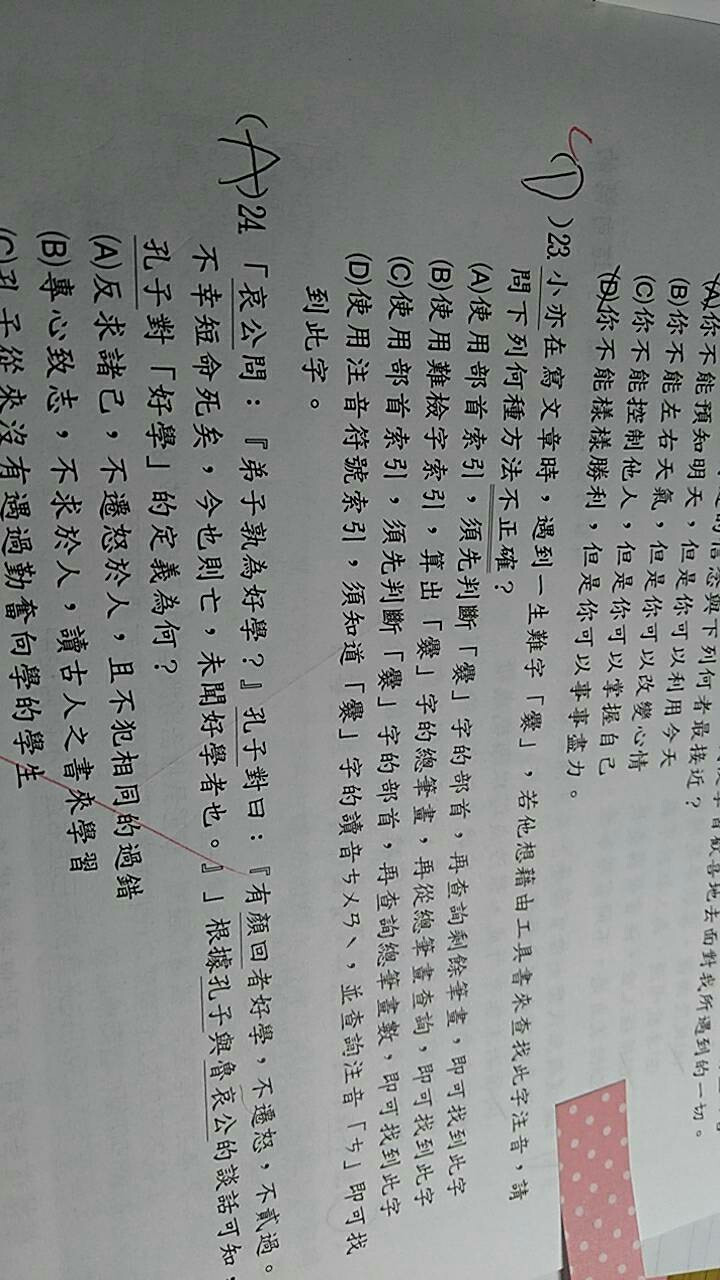 信念與下列何者最接近？
(A)你不能預知明天，但是你可以利用今天
(B)你不能左右天氣，但是你可以改變心情
(C)你不能控制他人，但是你可以掌握自己
(D)你不能樣樣勝利，但是你可以事事盡力。
(D)23.小亦在寫文章時，遇到一生難字「爨」，若他想藉由工具書來查找此字注音，請
問下列何種方法不正確？
(A)使用部首索引，須先判斷「爨」字的部首，再查詢剩餘筆畫，即可找到此字
(B)使用難檢字索引，算出「爨」字的總筆畫，再從總筆畫查詢，即可找到此字
(C)使用部首索引，須先判斷「爨」字的部首，再查詢總筆畫數，即可找到此字
(D)使用注音符號索引，須知道「爨」字的讀音ㄘㄨㄢˋ，並查詢注音「ㄘ」即可找
到此字。
(A)24.「哀公問：『弟子孰為好學？』孔子對曰：『有顏回者好學，不遷怒，不貳過。
不幸短命死矣，今也則亡，未聞好學者也。』」根據孔子與魯哀公的談話可知，
孔子對「好學」的定義為何？
(A)反求諸己，不遷怒於人，且不犯相同的過錯
(B)專心致志，不求於人，讀古人之書來學習
(C)孔子從來沒有遇過勤奮向學的學生